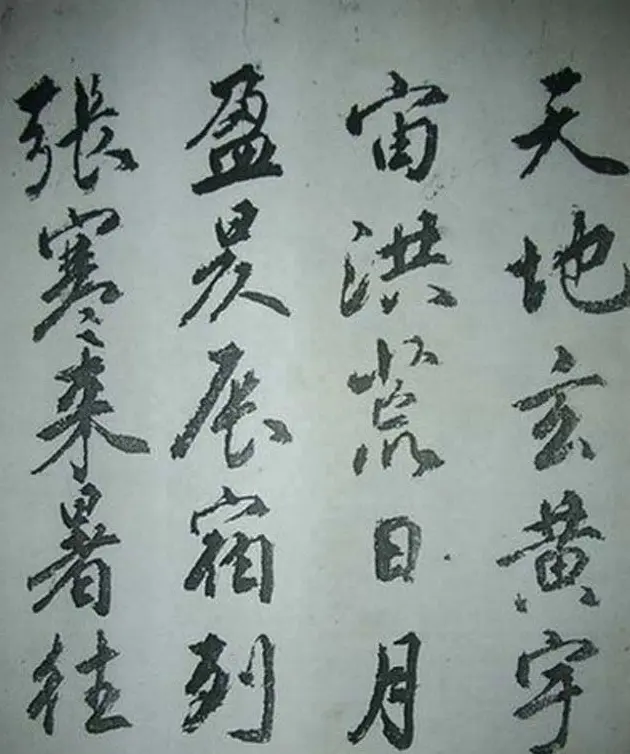 天地玄黄宇
宙洪荒日月
盈昃辰宿列
張寒来暑往